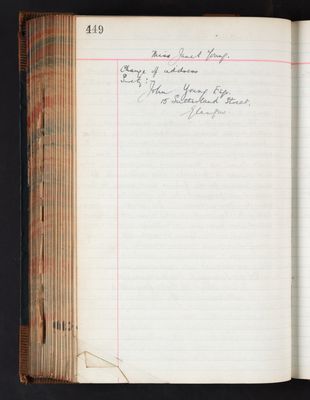 449
Miss Janet Young.
Change of address
John Young Esq.
15 Sutherland Street,
Glasgow